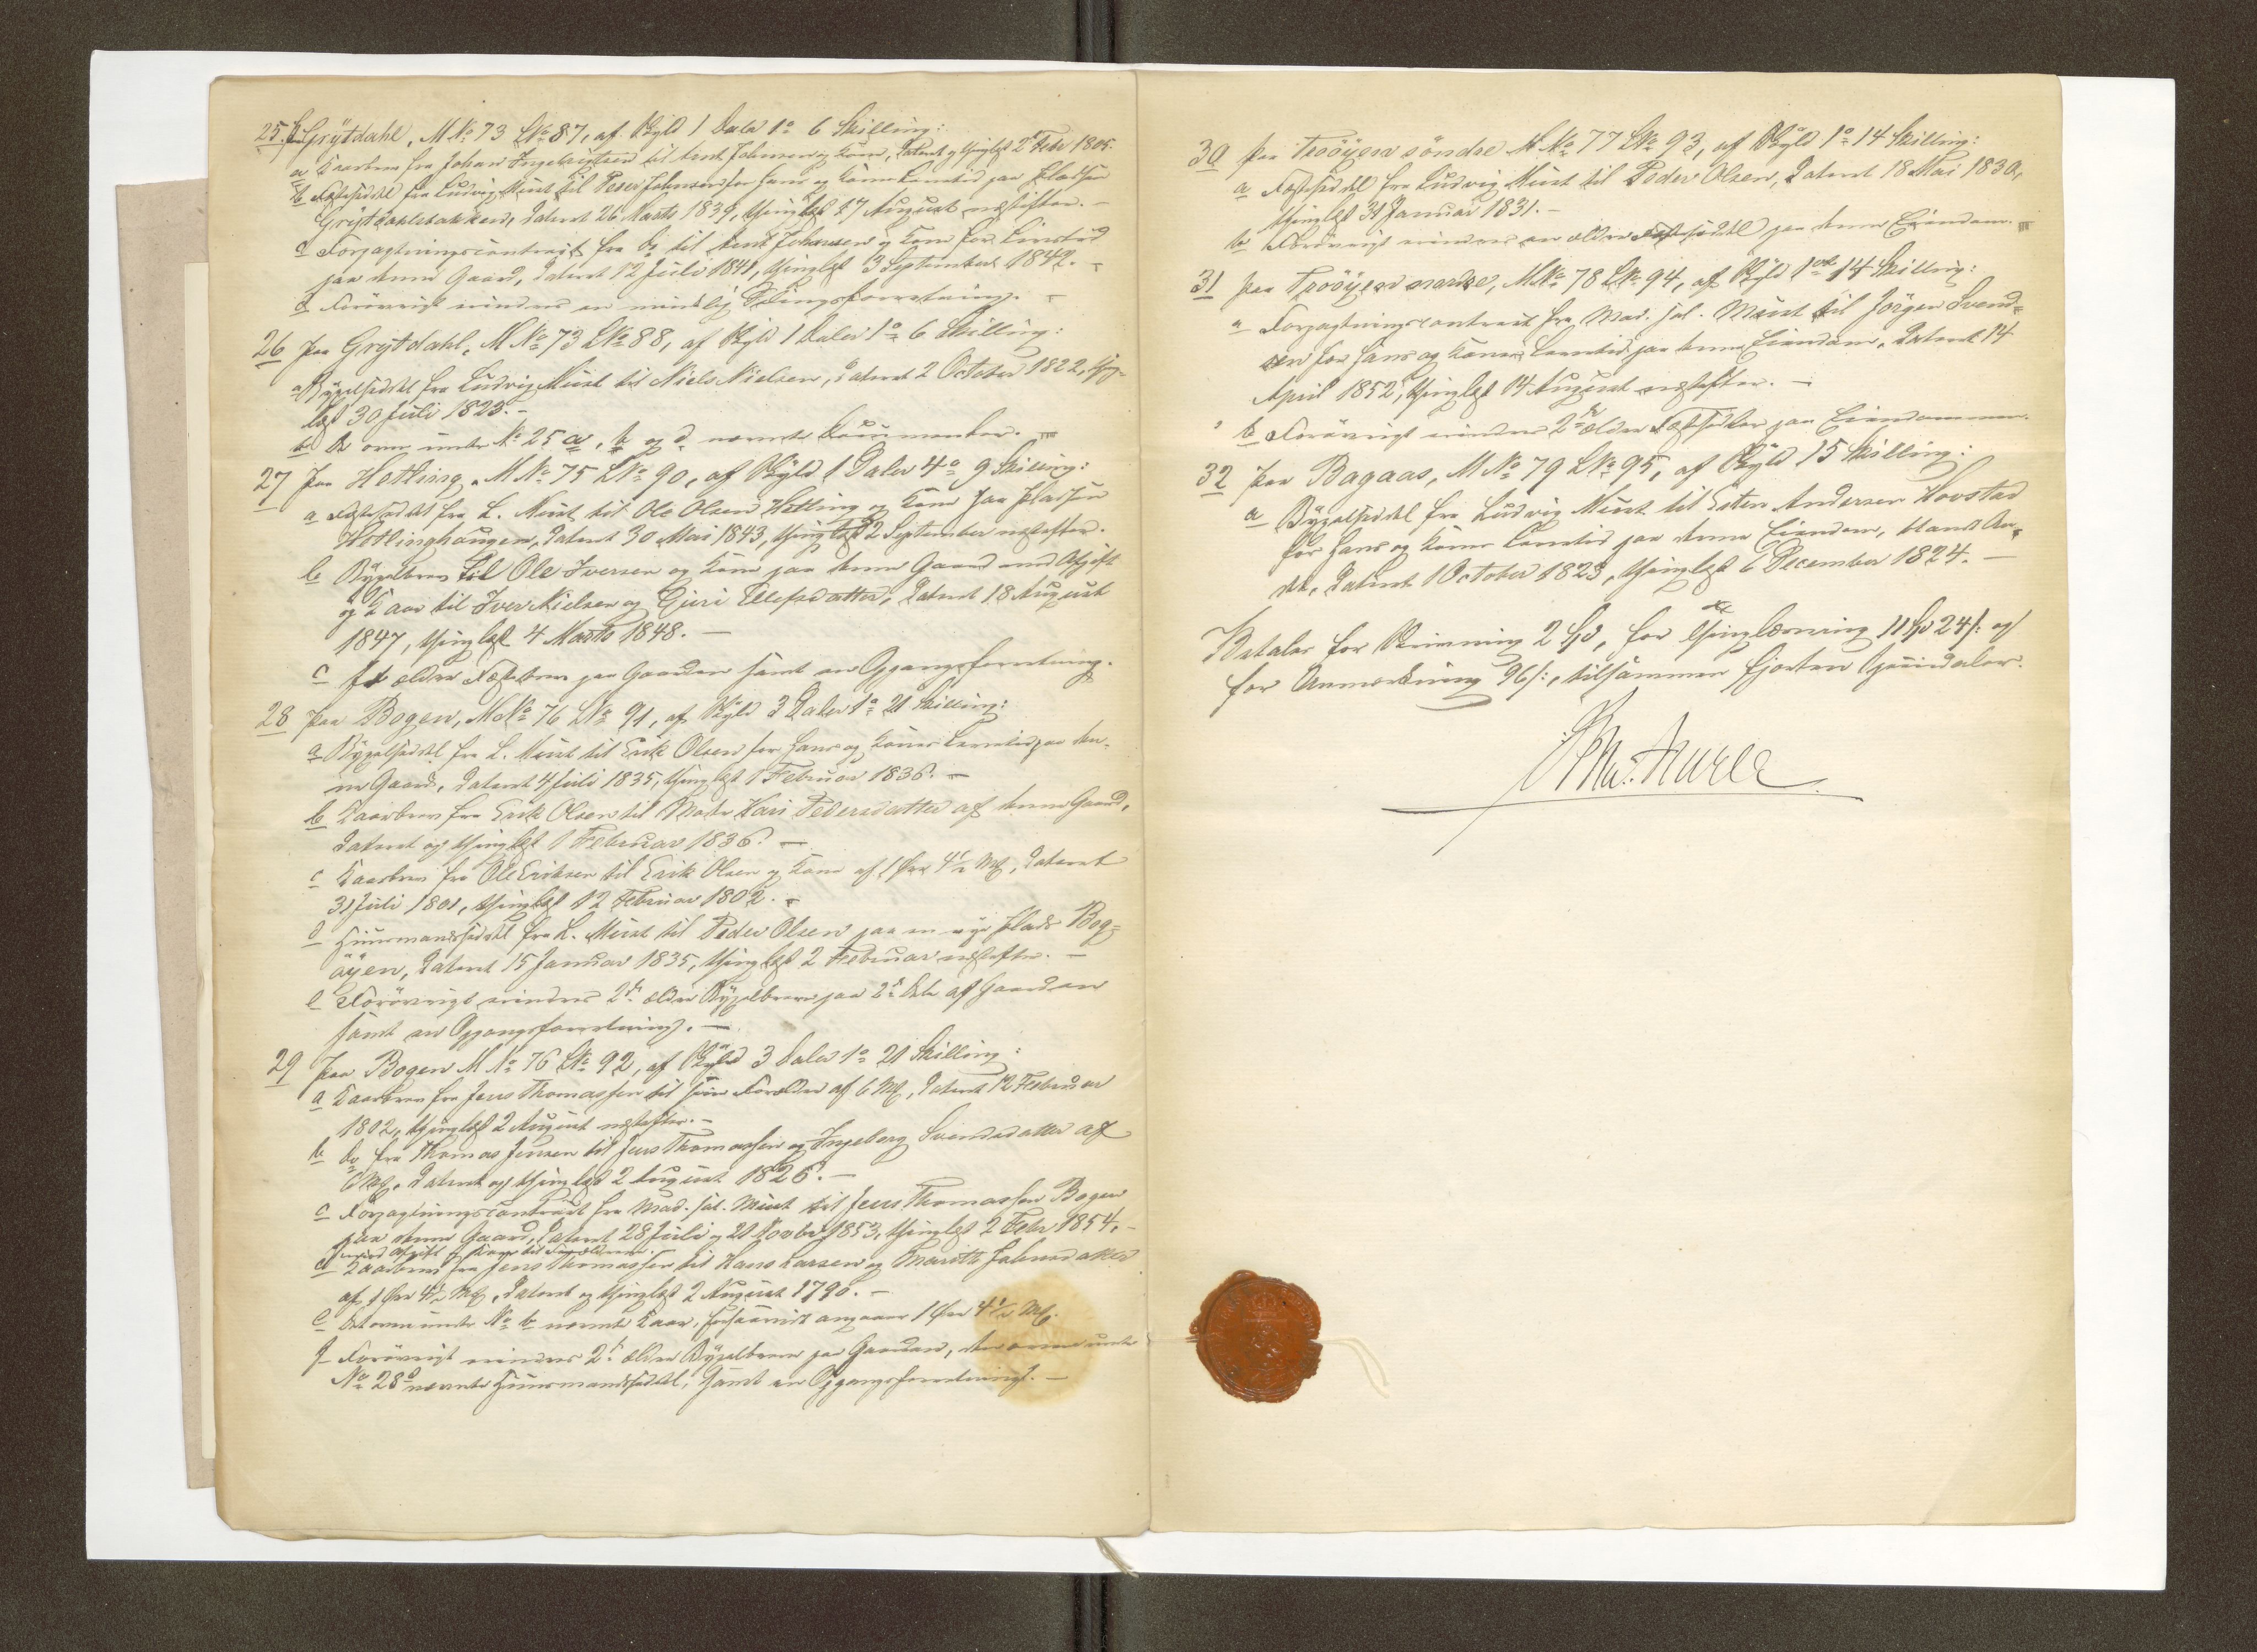 25. Paa Grÿtdahl, M No 73 L No 87, af Skÿld 1 Daler 1o 6 Skilling:
a Kaarbrev fra Johan Ingebrigtsen til Arnt Johnsen og Kone, Dateret og thinglyst 2 Febr 1805.
b Festeseddel fra Ludvig Must til Peder Johnsen for Hans og Kones Levetid paa Pladsen
Grÿtdahlsbakken, Dateret 26 Marts 1839, thinglyst 17 August næstefter. –
c Forpagtningscontract fra do til Arnt Johansen og Kone for Livstid
paa denne Gaard, Dateret 12 Juli 1841, thinglyst 3 September 1842. –
d Forövrigt erindres en mindelig Delingsforretning. –
26 Paa Grÿtdahl, M No 73 L No 88, af Skÿld 1 Daler 1o 6 Skilling:
a Bÿgselseddel fra Ludvig Must til Niels Nielsen, Dateret 2 October 1822, thing-
lyst 30 Juli 1823. –
b De oven under No 25 a, b og d nævnte Documenter.
27 Paa Hetling, M No 75 L No 90, af Skÿld 1 Daler 4o 9 Skilling:
a Festeseddel fra L. Must til Ole Olsen Hetling og Kone paa Pladsen
Hetlinghaugen, Dateret 30 Mai 1843, thinglyst 2 September næstefter.
b Bÿgselbrev til Ole Iversen og Kone paa denne Gaard med Afgift
og Kaar til Iver Nielsen og Gjuri Ellefsdatter, Dateret 18 August
1847, thinglyst 4 Marts 1848. –
c Et ældre Festebrev paa Gaarden samt en Opgangsforretning.
28 Paa Bogen, M No 76 L No 91, af Skÿld 3 Daler 1o 21 Skilling:
a Bÿgselseddel fra L. Must til Erik Olsen for Hans og Kones Levetid paa den-
ne Gaard, Dateret 4 Juli 1835, thinglyst 1 Februar 1836. –
b Kaarbrev fra Erik Olsen til Mode Kari Pedersdatter af denne Gaard,
Dateret og thinglyst 1 Februar 1836. –
c Kaarbrev fra Ole Eriksen til Erik Olsen og Kone af 1 Öre 4½ Mk, Dateret
31 Juli 1801, thinglyst 12 Februar 1802. –
d Huusmandsseddel fra L. Must til Peder Olsen paa en nye Plads Bog-
öÿen, Dateret 15 Januar 1835, thinglyst 2 Februar næstefter. –
e Forövrigt erindres 2de ældre Bÿgselbreve paa 2de Dele af Gaarden
samt en Opgangsforretning. –
29 Paa Bogen M No 76 L No 92, af Skÿld 3 Daler 1o 21 Skilling:
a Kaarbrev fra Jens Thomassen til sine Forældre af 6 Mk, Dateret 12 Februar
1802, thinglyst 2 August næstefter. –
b do fra Thomas Jensen til Jens Thomassen og Ingeborg Svendsdatter af
6 Mk, Dateret og thinglyst 2 August 1826. –
c Forpagtningscontract fra Mad. sal. Must til Jens Thomassen Bogen
paa denne Gaard, Dateret 28 Juli og 21 Novbr 1853, thinglyst 2 Febr 1854, –
med Afgift og Kaar til Forældrene. –
d Kaarbrev fra Jens Thomassen til Hans Larsen og Marith Johnsdatter
af 1 Öre 4½ Mk, Dateret og thinglyst 2 August 1796. –
e Det oven under No b nævnte Kaar, forsaavidt angaaer 1 Öre 4½ Mk.
f Forövrigt erindres 2de ældre Bÿgselbreve paa Gaarden, den oven under
No 28d nævnte Huusmandsseddel, samt en Opgangsforretning. –
30 Paa Tröÿen söndre M No 77 L No 93, af Skÿld 1o 14 Skilling:
a Festeseddel fra Ludvig Must til Peder Olsen, Dateret 18 Mai 1830,
thinglyst 31 Januar 1831. –
b Forövrigt erindres en ældre Festeseddel paa denne Eiendom.
31 Paa Tröÿen nordre, M No 78 L No 94, af Skÿld 1 ort 14 Skilling:
a Forpagtningscontract fra Mad. sal. Must til Jörgen Svend-
sen for Hans og Kones Levetid paa denne Eiendom, Dateret 14
April 1852, thinglyst 14 August næstefter. –
b Forövrigt erindres 2de ældre Festesedler paa Eiendommen.
32 Paa Bagaas, M No 79 L No 95, af Skÿld 15 Skilling:
a Bÿgselseddel fra Ludvig Must til Esten Andersen Hovstad
for Hans og Kones Levetid paa denne Eiendom, blandt An-
det, Dateret 1 October 1823, thinglyst 6 December 1824. –
Betaler for Skrivning 2 Spd, for Thinglæsning 11 Spd 24 s: og
for Anmærkning 96 s:, tilsammen fjorten Speciedaler.